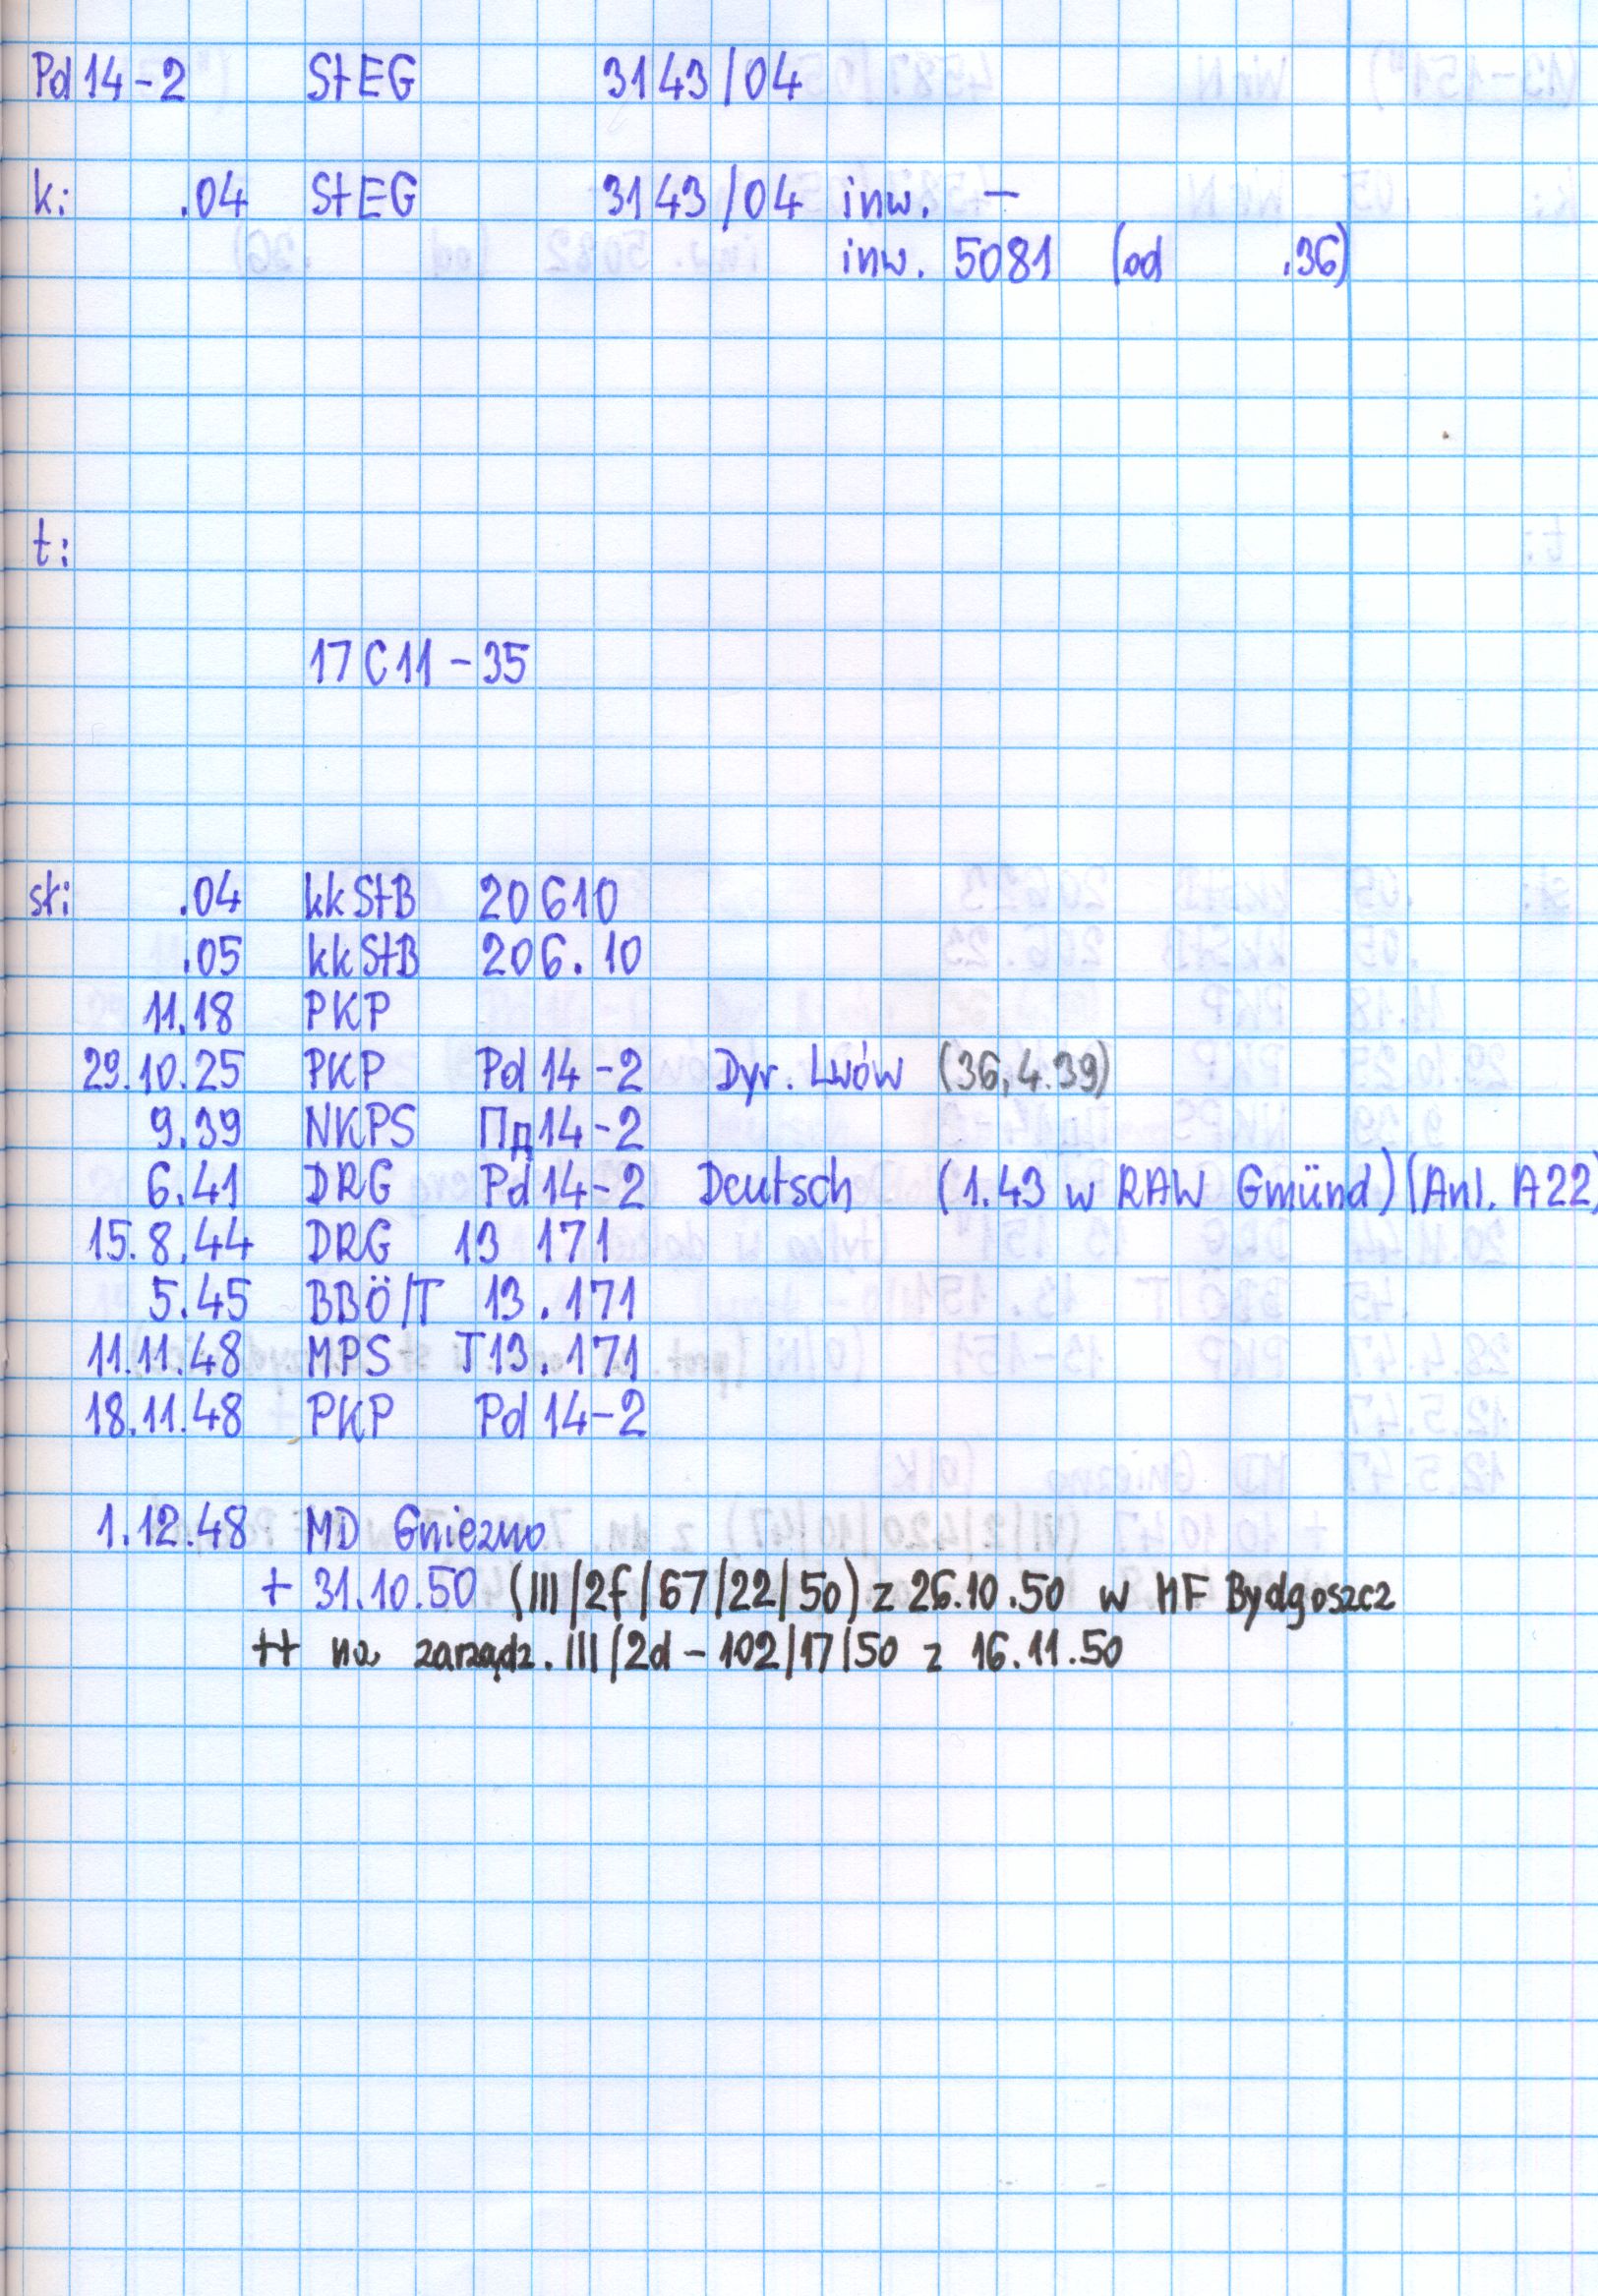 Pd 14-2 StEG 3143/04
k: .04 StEG 3143/04 inw. –
inw. 5081 (od .36)
t:
17C11-35
st: .04 kkStB 20610
.05 kkStB 206.10
11.18 PKP
29.10.25 PKP Pd 14-2 Dyr. Lwów (36, 4.39)
9.39 NKPS Пд 14-2
6.41 DRG Pd 14-2 Deutsch (1.43 w RAW Gmünd) (Anl. A22)
15.8.44 DRG 13 171
5.45 BBÖ/T 13.171
11.11.48 MPS T13.171
18.11.48 PKP Pd 14-2
1.12.48 MD Gniezno
+ 31.10.50 (III/2f/67/22/50) z 26.10.50 w MF Bydgoszcz
++ na zarządz. III/2d-102/17/50 z 16.11.50